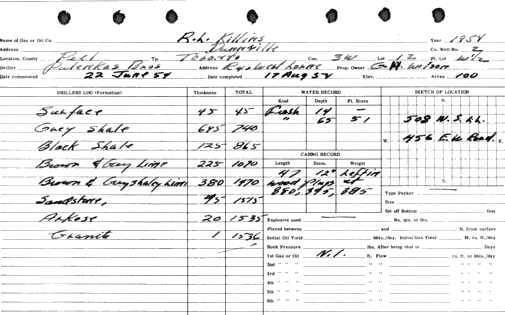 Name of Gas or Oil Co. R.L. Killins Year 1954
Address Dunnville Co. Well No. 2
Location, County Peel Tp. Toronto Con. 3W Lot 12 Pt. Lot W 1/2
Driller Address Prop. Owner G.H. Wilson.
Date commenced 22 June 54 Date completed 17 Aug 54 Elev. Acres 100
DRILLERS LOG (Formation) Thickness TOTAL WATER RECORD SKETCH OF LOCATION
Kind Depth Ft. Rises N.
Surface 45 45 Fresh 14 —
" 65 51 508 N.S.L.L.
Grey Shale 695 740 W. 456 E.W. Road. E.
Black Shale 125 865
CASING RECORD
Brown & Grey Lime 225 1090 Length Diam. Weight
47 12" Left in
Brown & Grey shaley Lime 380 1470 wood plugs at S.
880, 395, 885
Sandstone, 95 1515 Type Packer
Size
Set off Bottom feet
Arkose 20 1535 Explosive used No. qts. or lbs.
Granite 1 1536 Placed between and ft. from surface
Initial Oil Yield Bbls./day. Initial Gas Yield M. cu. ft./day
Rock Pressure lbs. After being shut in Days
1st Gas or Oil N.I. ft. Flow cu. ft. or bbls./day
2nd " " " " "
3rd " " " " "
4th " " " " "
5th " " " " "
6th " " " " "